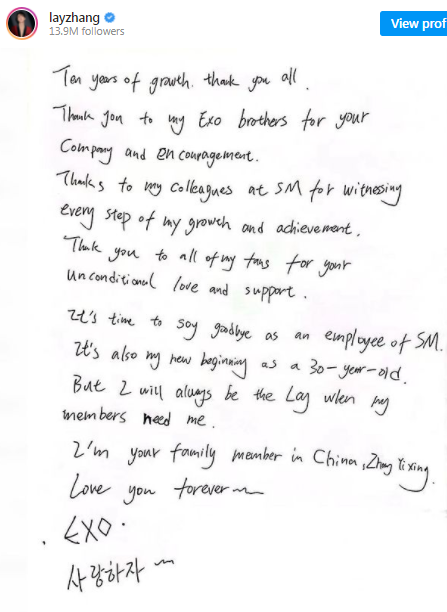 layzhang
13.9M followers
View prof
Ten years of growth. thank you all.
Thank you to my Exo brothers for your
Company and encouragement.
Thanks to my colleagues at SM for witnessing
every step of my growth and achievement.
Thank you to all of my fans for your
unconditional love and support.
It's time to say goodbye as an employee of SM.
It's also my new beginning as a 30-year-old.
But I will always be the Lay when my
members need me.
I'm your family member in China, Zhang Yixing.
Love you forever~~
EXO.
사랑하자 ~